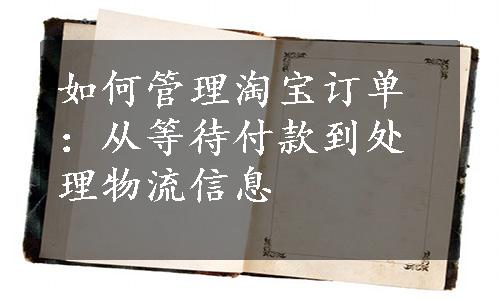 如何管理淘宝订单
：从等待付款到处
理物流信息